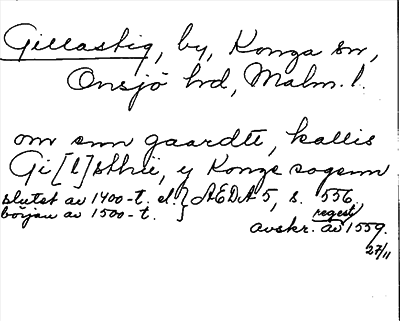 Gillastig, by, Konga sn,
Onsjö hrd, Malm. l.
om snn gaardtt, kallis
Gi[l]sthie, y Konge sogenn
slutet av 1400-t. el. } AEDA 5, s. 556.
början av 1500-t.
regest
avskr. av 1559.
27/11